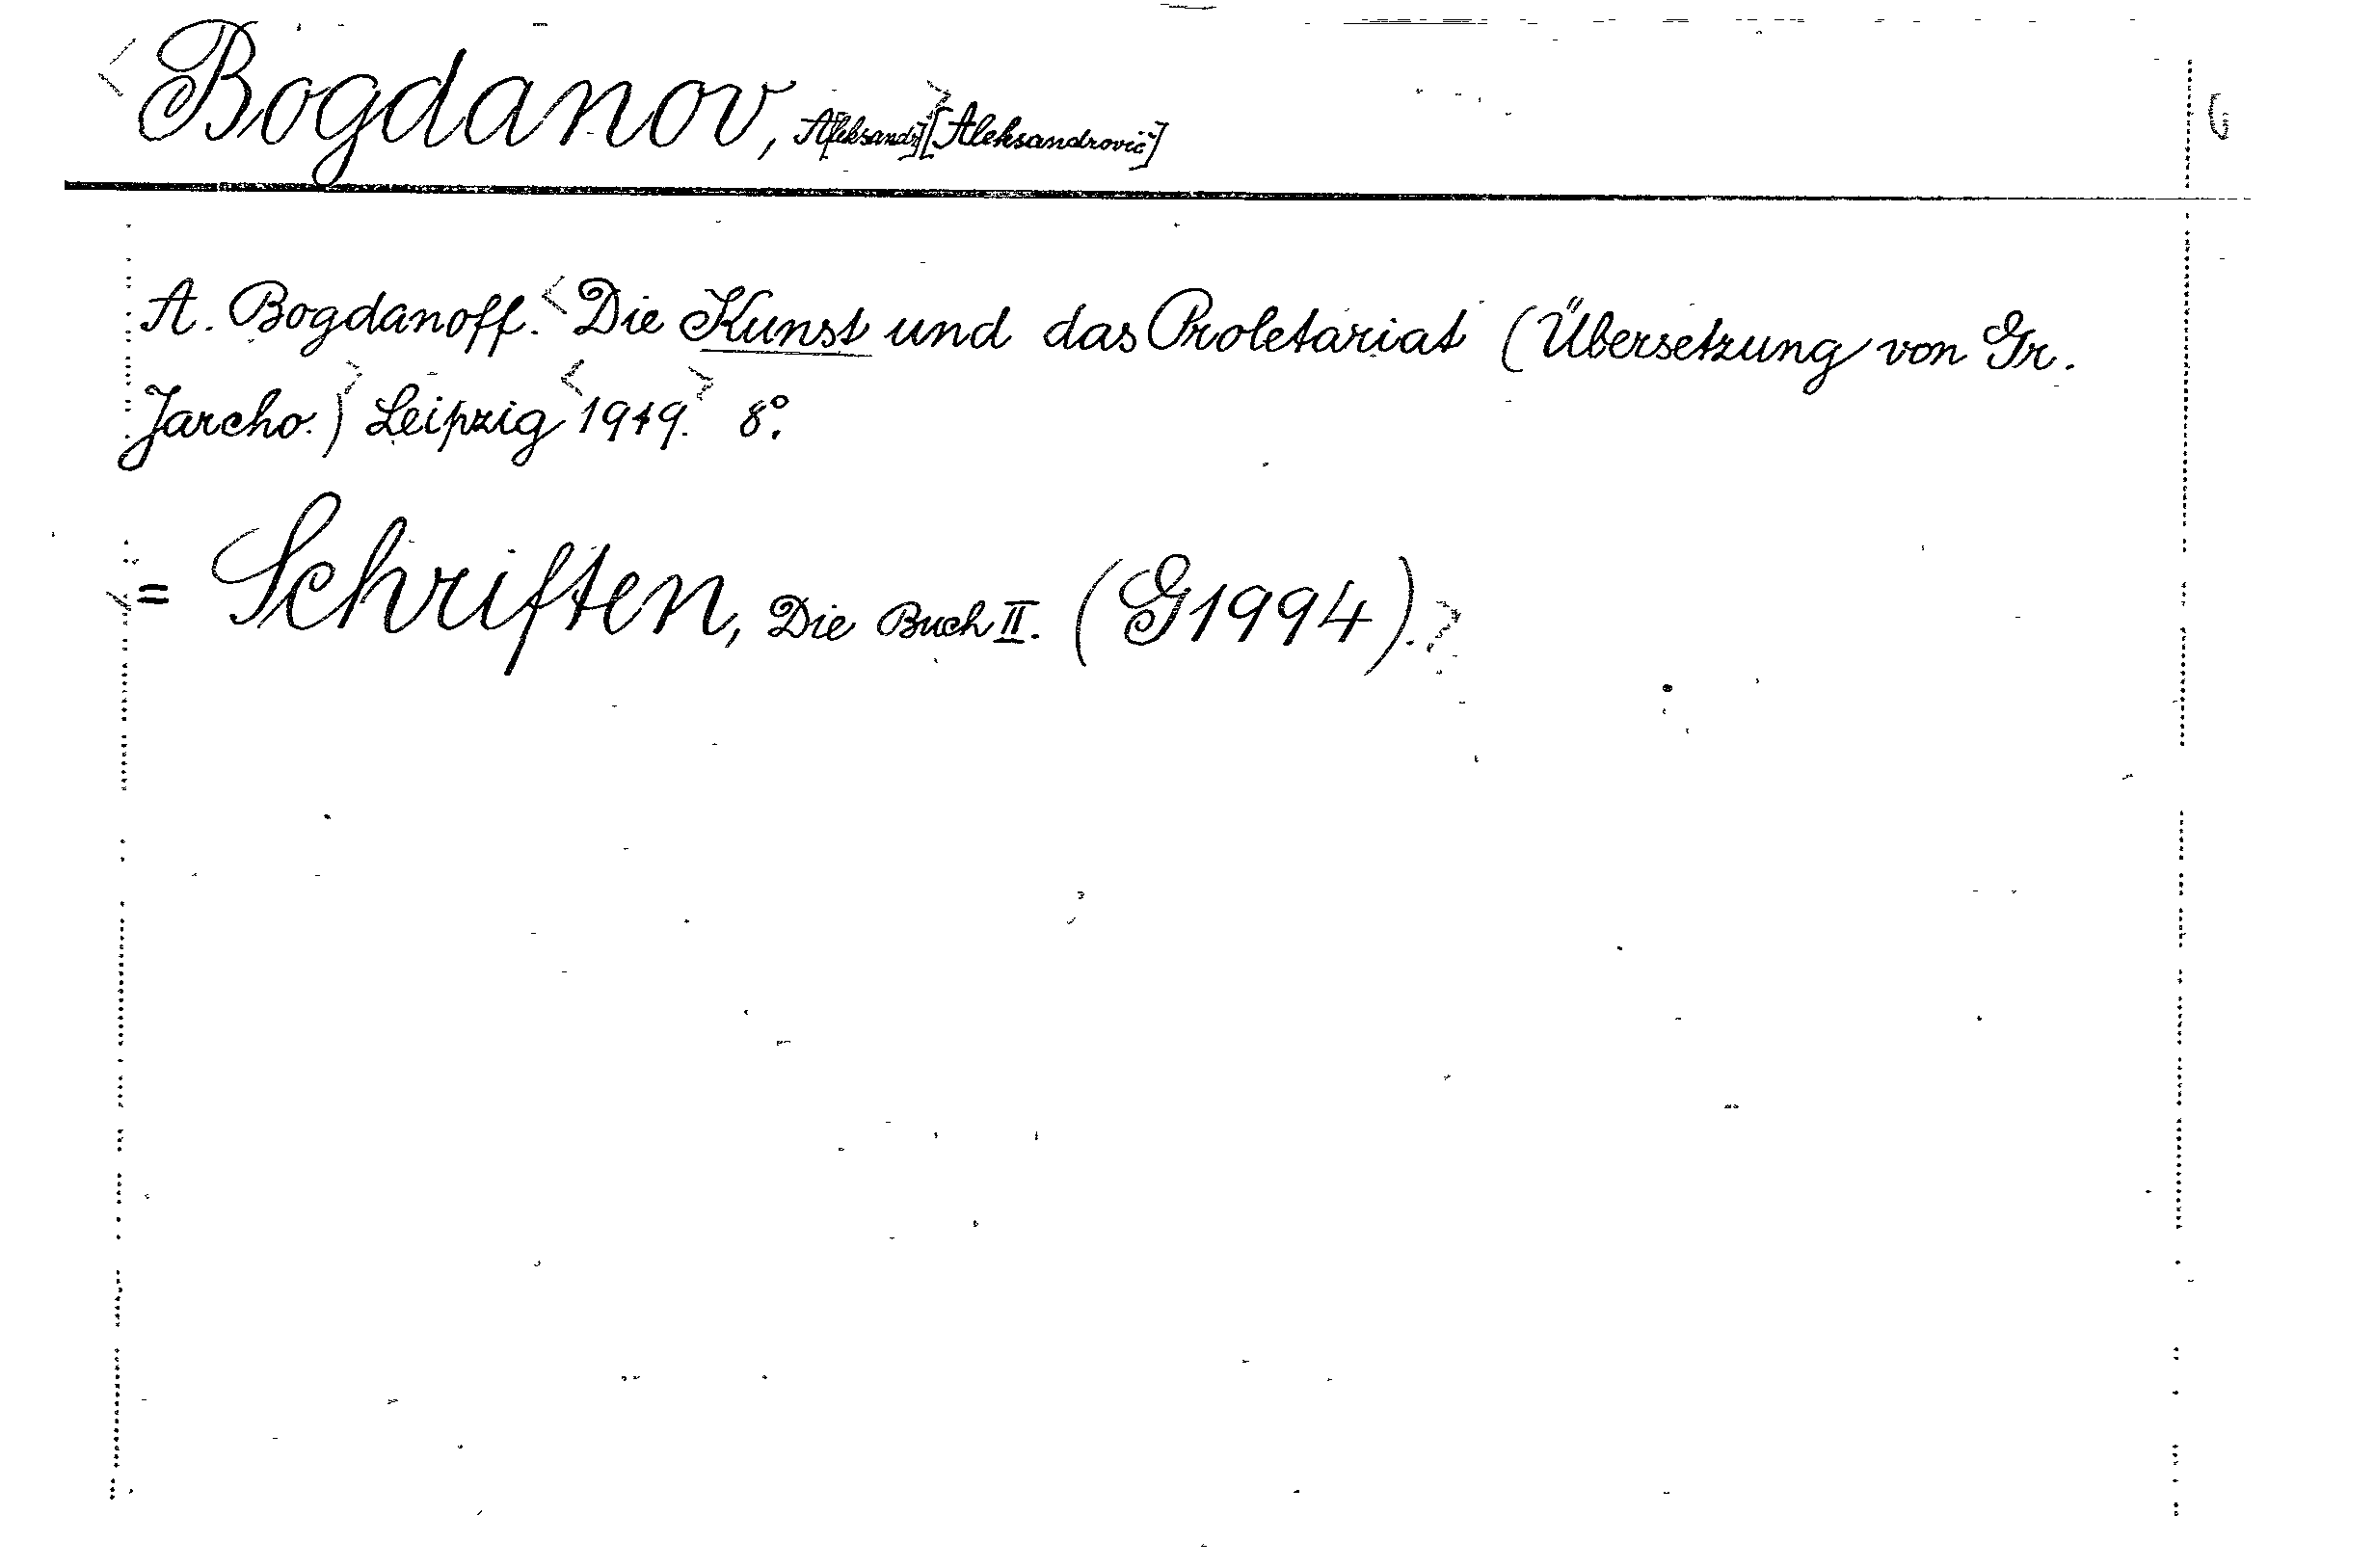 <Bogdanov, A[leksandr]> [Aleksandrovič]
A. Bogdanoff. <Die Kunst und das Proletariat (Übersetzung von Gr.
Jarcho.)> Leipzig <1919.> 8°.
<= Schriften, Die Buch II. (G1994).>